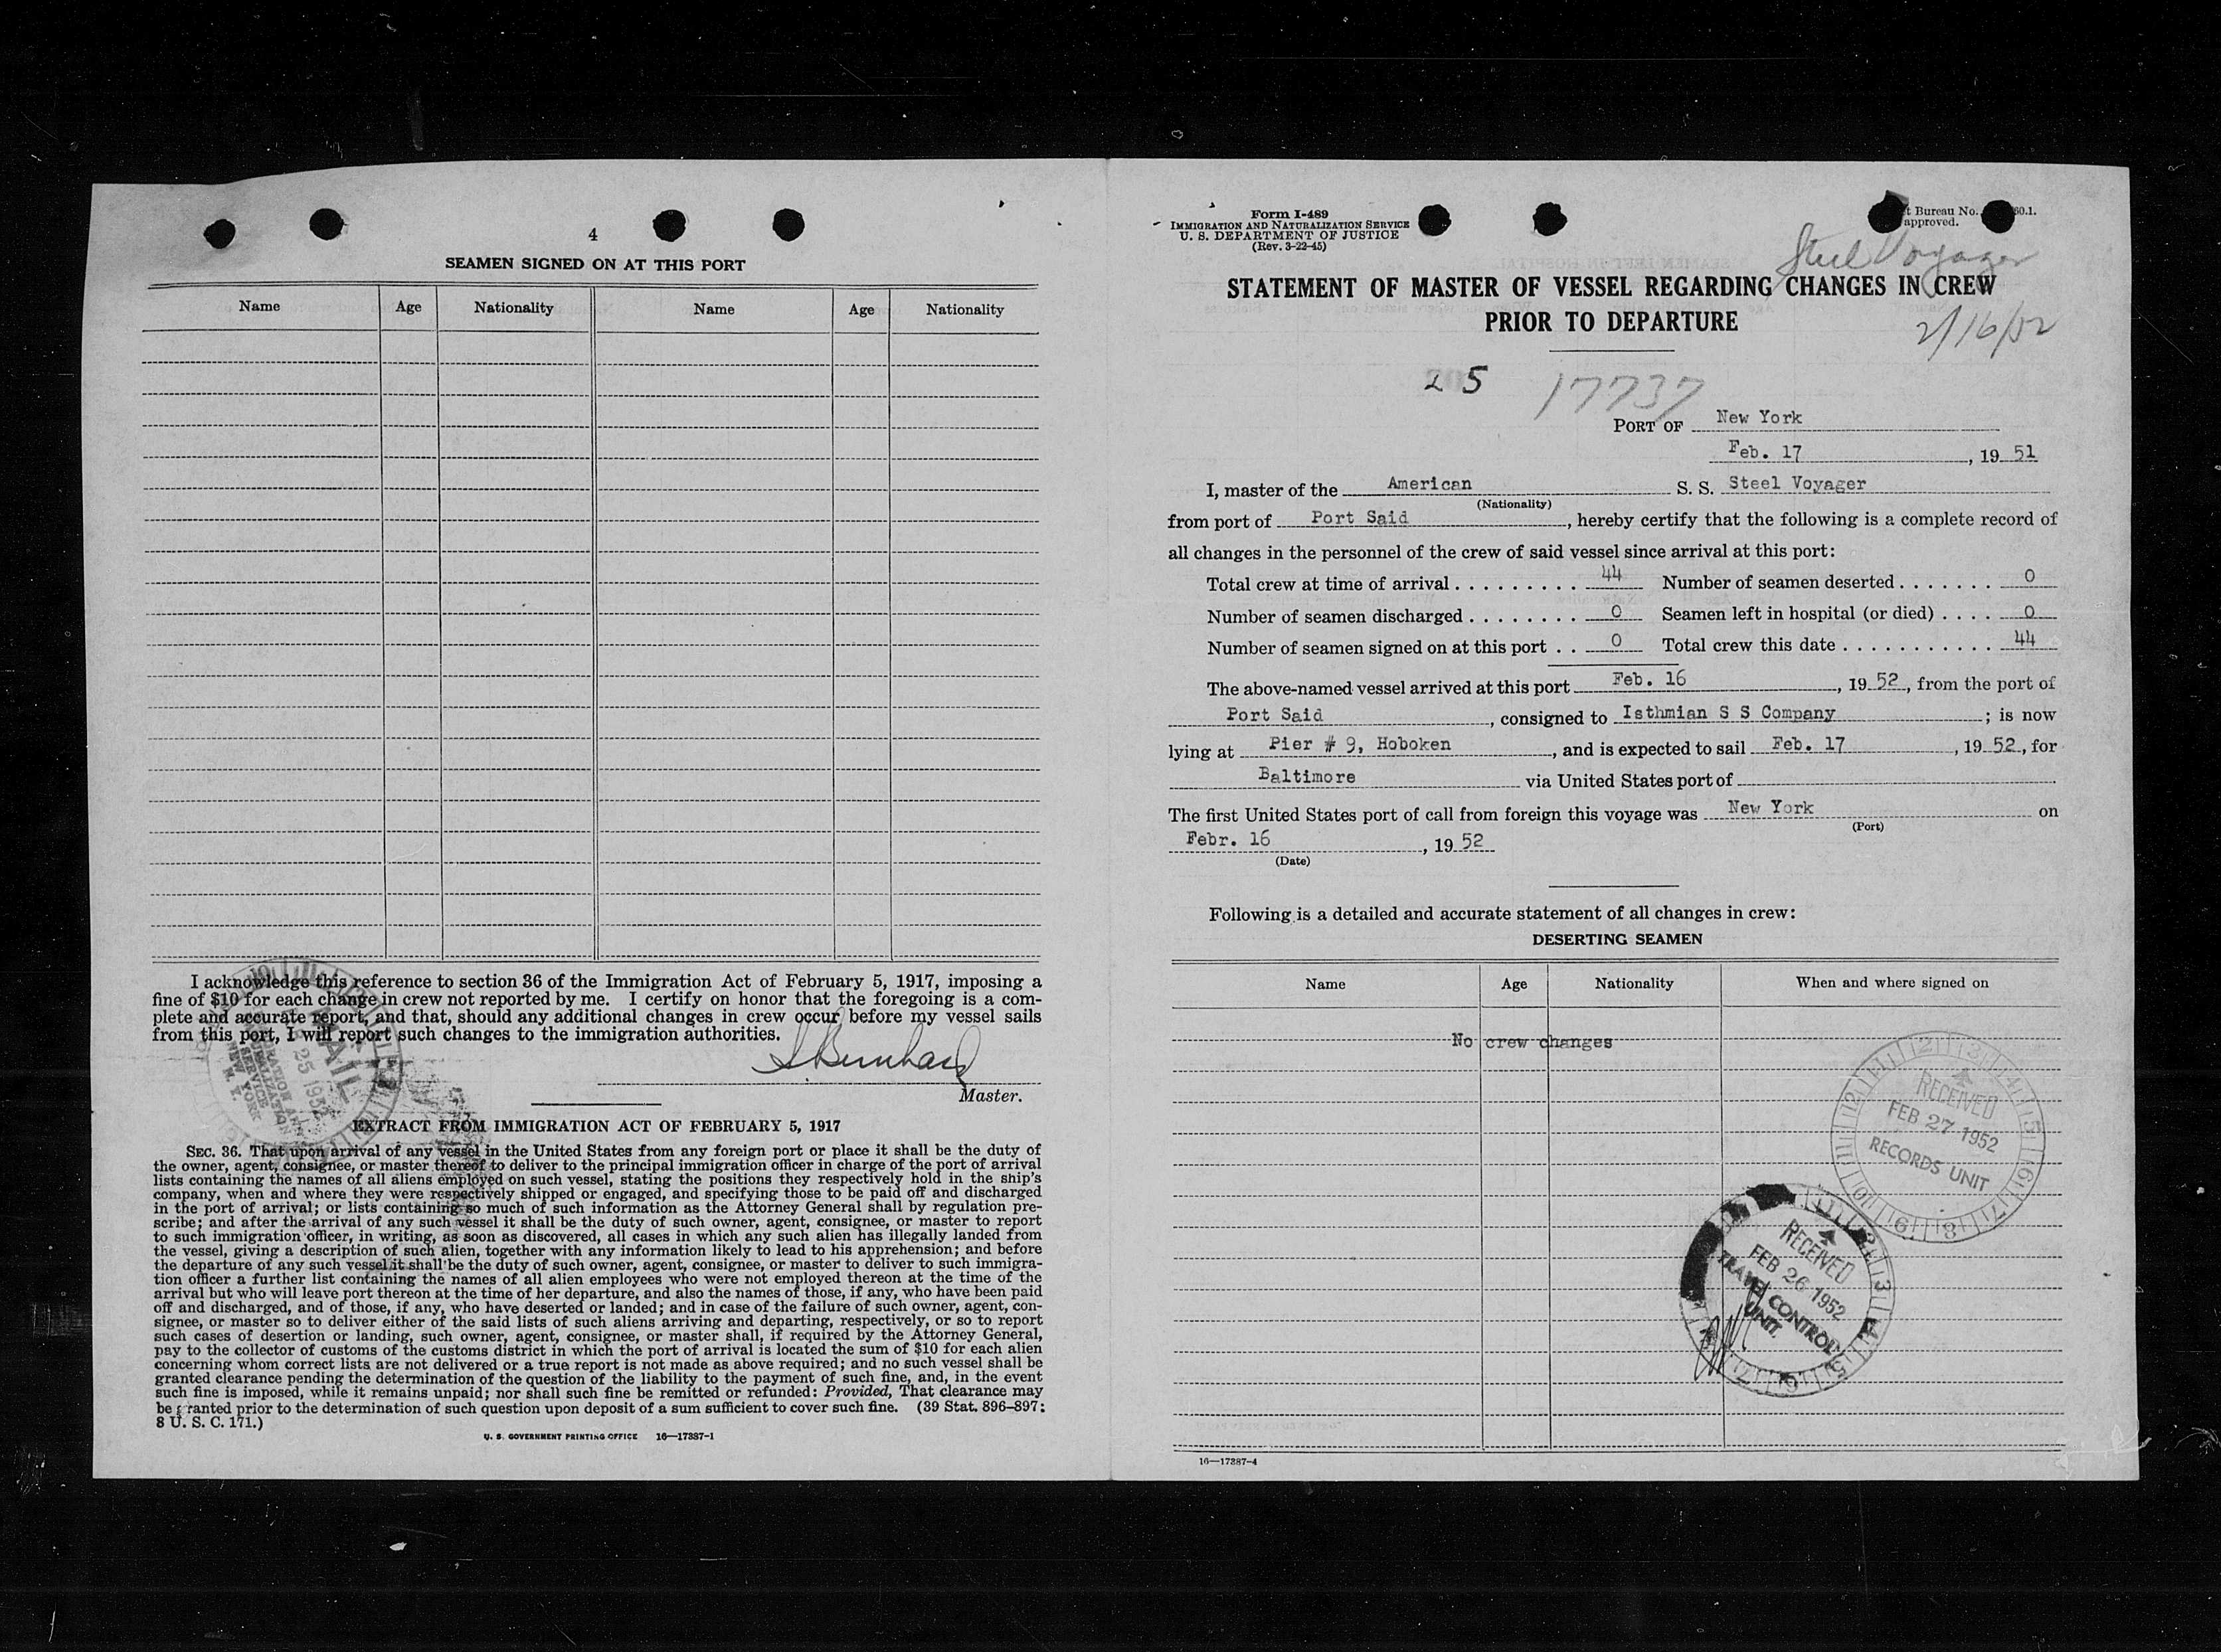 4
SEAMEN SIGNED ON AT THIS PORT
Name Age Nationality Name Age Nationality
I acknowledge this reference to section 36 of the Immigration Act of February 5, 1917, imposing a
fine of $10 for each change in crew not reported by me. I certify on honor that the foregoing is a com-
plete and accurate report, and that, should any additional changes in crew occur before my vessel sails
from this port, I will report such changes to the immigration authorities.
Master.
MAIL
25 1952
NEW YORK
N. Y.
EXTRACT FROM IMMIGRATION ACT OF FEBRUARY 5, 1917
SEC. 36. That upon arrival of any vessel in the United States from any foreign port or place it shall be the duty of
the owner, agent, consignee, or master thereof to deliver to the principal immigration officer in charge of the port of arrival
lists containing the names of all aliens employed on such vessel, stating the positions they respectively hold in the ship's
company, when and where they were respectively shipped or engaged, and specifying those to be paid off and discharged
in the port of arrival; or lists containing so much of such information as the Attorney General shall by regulation pre-
scribe; and after the arrival of any such vessel it shall be the duty of such owner, agent, consignee, or master to report
to such immigration officer, in writing, as soon as discovered, all cases in which any such alien has illegally landed from
the vessel, giving a description of such alien, together with any information likely to lead to his apprehension; and before
the departure of any such vessel it shall be the duty of such owner, agent, consignee, or master to deliver to such immigra-
tion officer a further list containing the names of all alien employees who were not employed thereon at the time of the
arrival but who will leave port thereon at the time of her departure, and also the names of those, if any, who have been paid
off and discharged, and of those, if any, who have deserted or landed; and in case of the failure of such owner, agent, con-
signee, or master so to deliver either of the said lists of such aliens arriving and departing, respectively, or so to report
such cases of desertion or landing, such owner, agent, consignee, or master shall, if required by the Attorney General,
pay to the collector of customs of the customs district in which the port of arrival is located the sum of $10 for each alien
concerning whom correct lists are not delivered or a true report is not made as above required; and no such vessel shall be
granted clearance pending the determination of the question of the liability to the payment of such fine, and, in the event
such fine is imposed, while it remains unpaid; nor shall such fine be remitted or refunded: Provided, That clearance may
be granted prior to the determination of such question upon deposit of a sum sufficient to cover such fine. (39 Stat. 896–897;
8 U. S. C. 171.)
U. S. GOVERNMENT PRINTING OFFICE 16—17387-1
Form I-489
IMMIGRATION AND NATURALIZATION SERVICE
U. S. DEPARTMENT OF JUSTICE
(Rev. 3-22-45)
Bureau No.
approved.
Steel Voyager
STATEMENT OF MASTER OF VESSEL REGARDING CHANGES IN CREW
PRIOR TO DEPARTURE
2/16/52
25 17737
PORT OF New York
Feb. 17, 19 51
I, master of the American S. S. Steel Voyager
(Nationality)
from port of Port Said, hereby certify that the following is a complete record of
all changes in the personnel of the crew of said vessel since arrival at this port:
Total crew at time of arrival . . . . . . . . . 44 Number of seamen deserted . . . . . . . 0
Number of seamen discharged . . . . . . . . 0 Seamen left in hospital (or died) . . . . 0
Number of seamen signed on at this port . . 0 Total crew this date . . . . . . . . . . . 44
The above-named vessel arrived at this port Feb. 16, 19 52, from the port of
Port Said, consigned to Isthmian S S Company; is now
lying at Pier # 9, Hoboken, and is expected to sail Feb. 17, 19 52, for
Baltimore via United States port of
The first United States port of call from foreign this voyage was New York on
(Port)
Febr. 16, 19 52
(Date)
Following is a detailed and accurate statement of all changes in crew:
DESERTING SEAMEN
Name Age Nationality When and where signed on
No crew changes
RECEIVED
FEB 27 1952
RECORDS UNIT
RECEIVED
FEB 26 1952
TRAVEL CONTROL
UNIT.
16—17387-4